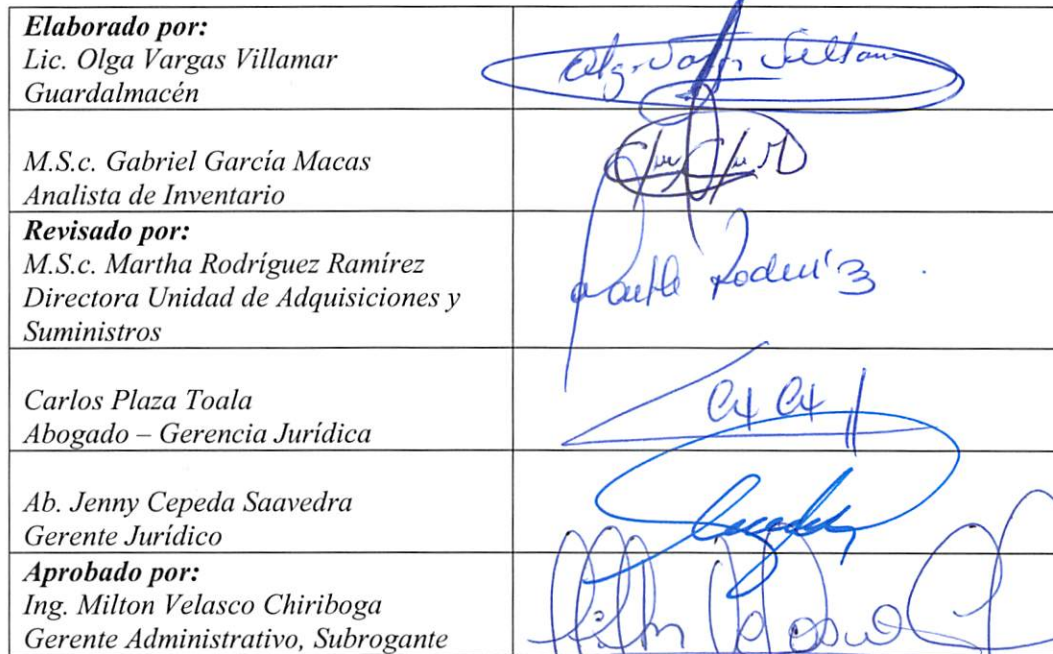 Elaborado por:
Lic. Olga Vargas Villamar
Guardalmacén
M.S.c. Gabriel García Macas
Analista de Inventario
Revisado por:
M.S.c. Martha Rodríguez Ramírez
Directora Unidad de Adquisiciones y
Suministros
Carlos Plaza Toala
Abogado – Gerencia Jurídica
Ab. Jenny Cepeda Saavedra
Gerente Jurídico
Aprobado por:
Ing. Milton Velasco Chiriboga
Gerente Administrativo, Subrogante